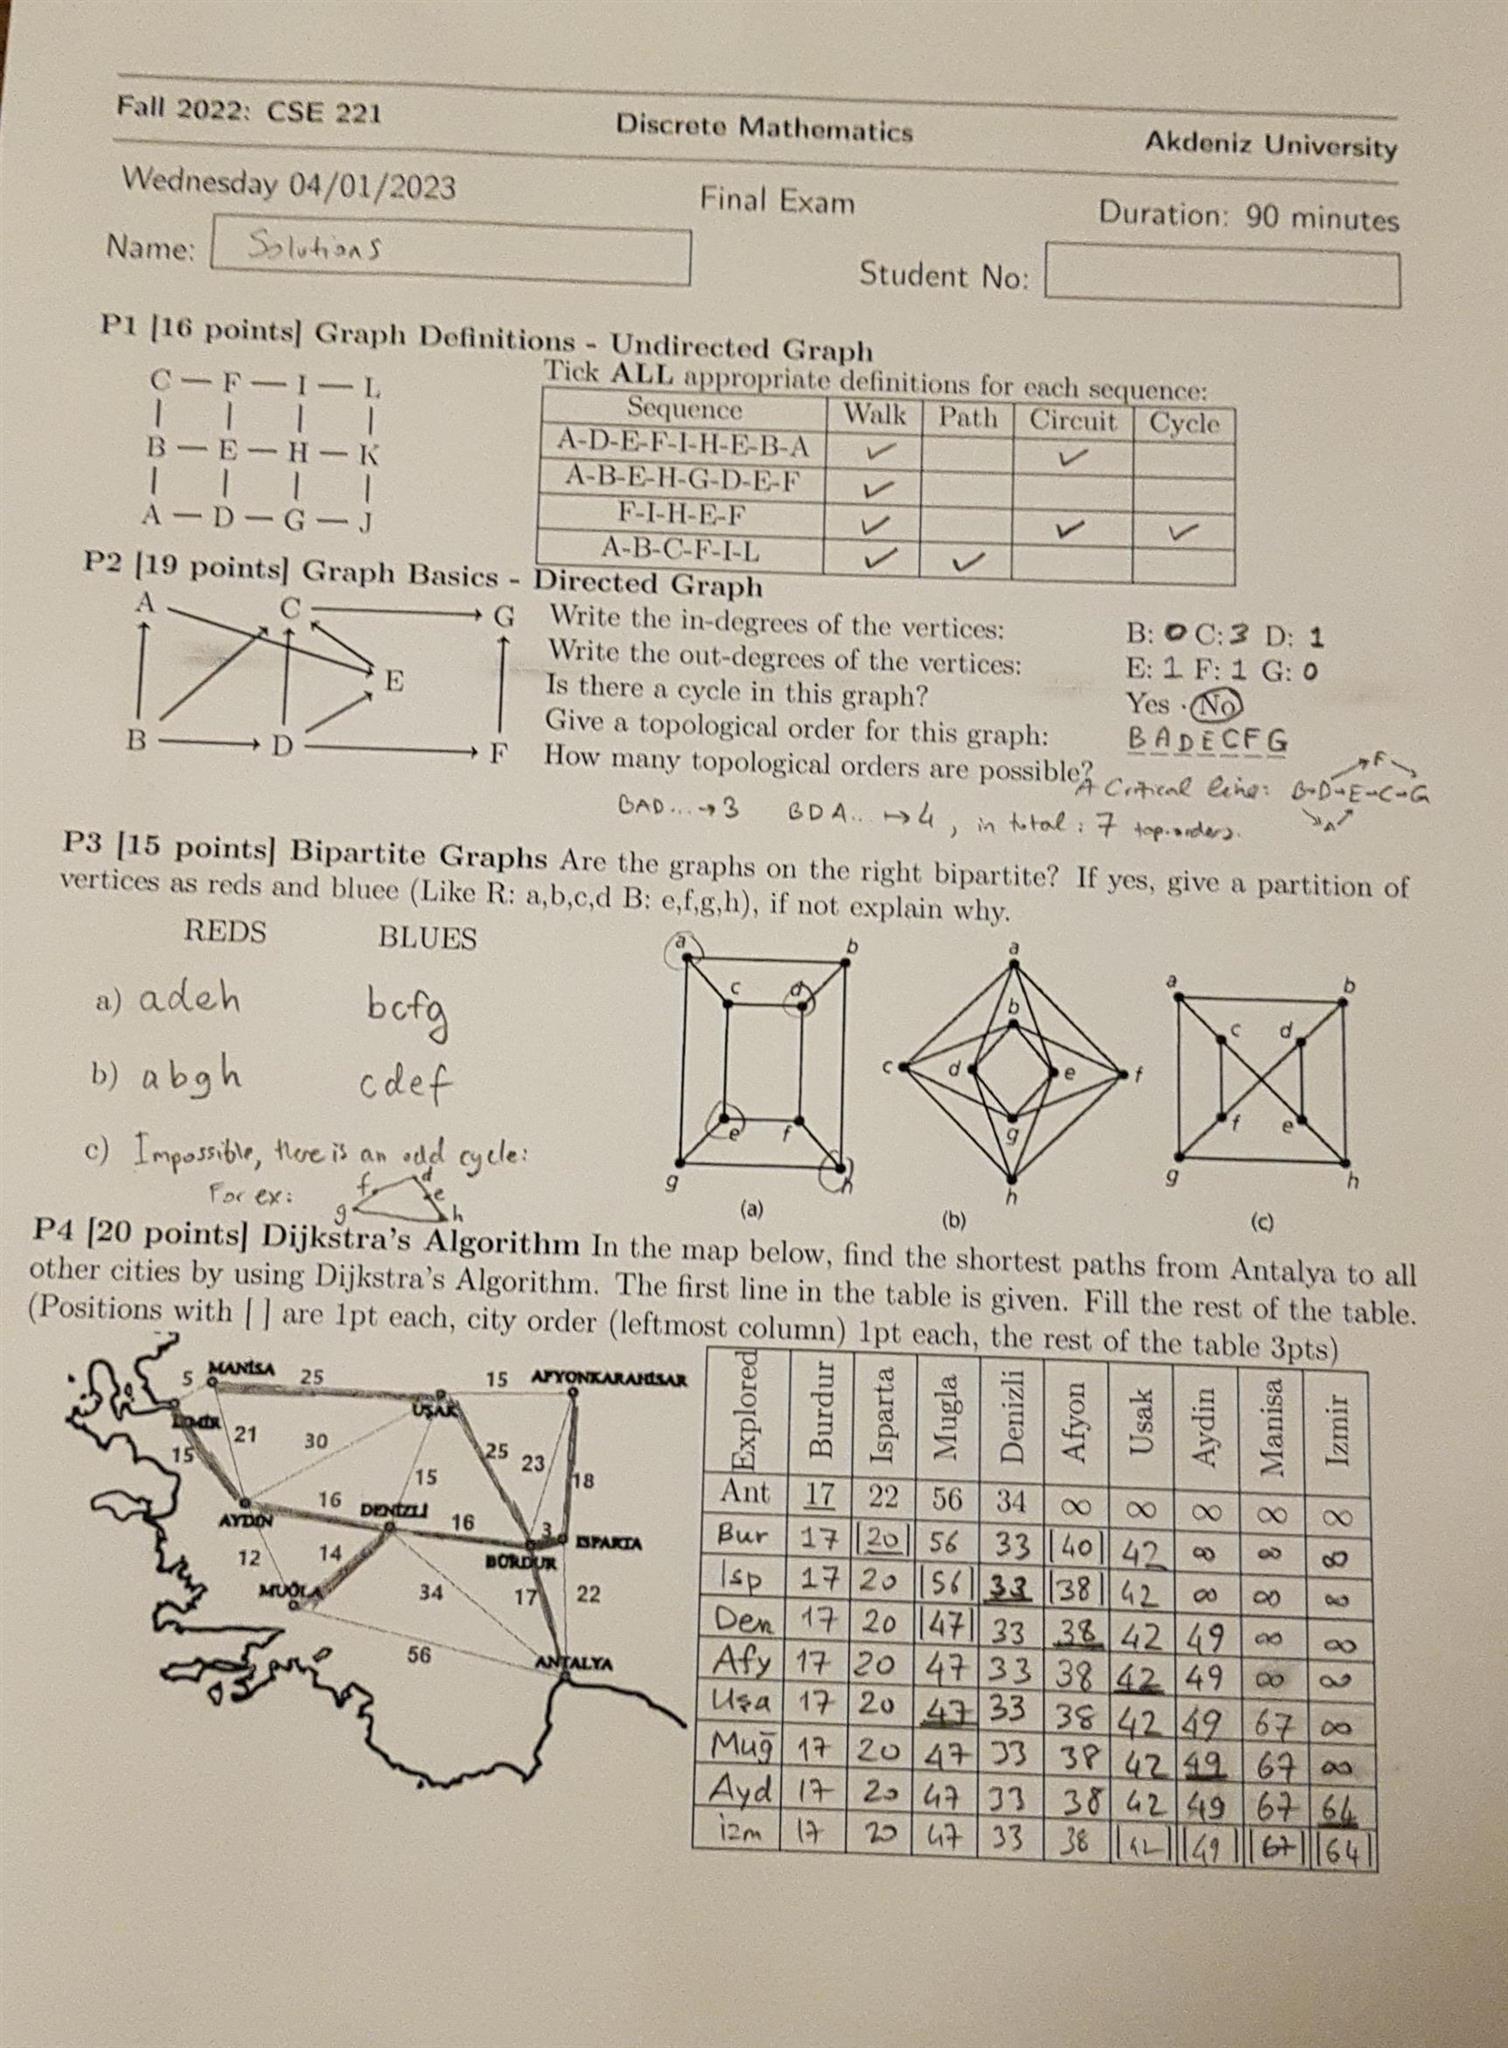 Fall 2022: CSE 221 Discrete Mathematics Akdeniz University
Wednesday 04/01/2023 Final Exam Duration: 90 minutes
Name: Solutions Student No:
P1 [16 points] Graph Definitions - Undirected Graph
Tick ALL appropriate definitions for each sequence:
C F I L
B E H K
A D G J
Sequence Walk Path Circuit Cycle
A-D-E-F-I-H-E-B-A ✓ ✓
A-B-E-H-G-D-E-F ✓
F-I-H-E-F ✓ ✓ ✓
A-B-C-F-I-L ✓ ✓
P2 [19 points] Graph Basics - Directed Graph
A C G
E
B D F
Write the in-degrees of the vertices: B: 0 C: 3 D: 1
Write the out-degrees of the vertices: E: 1 F: 1 G: 0
Is there a cycle in this graph? Yes · No
Give a topological order for this graph: B A D E C F G
How many topological orders are possible?
A Critical line: B→D→E→C→G
F
A
BAD... → 3 BDA.. ↦ 4, in total: 7 top.orders.
P3 [15 points] Bipartite Graphs Are the graphs on the right bipartite? If yes, give a partition of
vertices as reds and bluee (Like R: a,b,c,d B: e,f,g,h), if not explain why.
REDS BLUES
a) adeh bcfg
b) abgh cdef
c) Impossible, there is an odd cycle:
For ex: f d e g h
a b c d e f g h
(a)
a b c d e f g h
(b)
a b c d f e g h
(c)
P4 [20 points] Dijkstra's Algorithm In the map below, find the shortest paths from Antalya to all
other cities by using Dijkstra's Algorithm. The first line in the table is given. Fill the rest of the table.
(Positions with [ ] are 1pt each, city order (leftmost column) 1pt each, the rest of the table 3pts)
5 MANİSA 25 15 AFYONKARAHİSAR
İZMİR UŞAK
15 21 30 25 23 18
15
16 DENİZLİ 16 3 ISPARTA
AYDIN BURDUR
12 14 34 17 22
MUĞLA
56 ANTALYA
Explored Burdur Isparta Mugla Denizli Afyon Usak Aydin Manisa Izmir
Ant 17 22 56 34 ∞ ∞ ∞ ∞ ∞
Bur 17 [20] 56 33 [40] 42 ∞ ∞ ∞
Isp 17 20 [56] 33 [38] 42 ∞ ∞ ∞
Den 17 20 [47] 33 38 42 49 ∞ ∞
Afy 17 20 47 33 38 42 49 ∞ ∞
Uşa 17 20 47 33 38 42 49 67 ∞
Muğ 17 20 47 33 38 42 49 67 ∞
Ayd 17 20 47 33 38 42 49 67 64
izm 17 20 47 33 38 [42] [49] [67] [64]